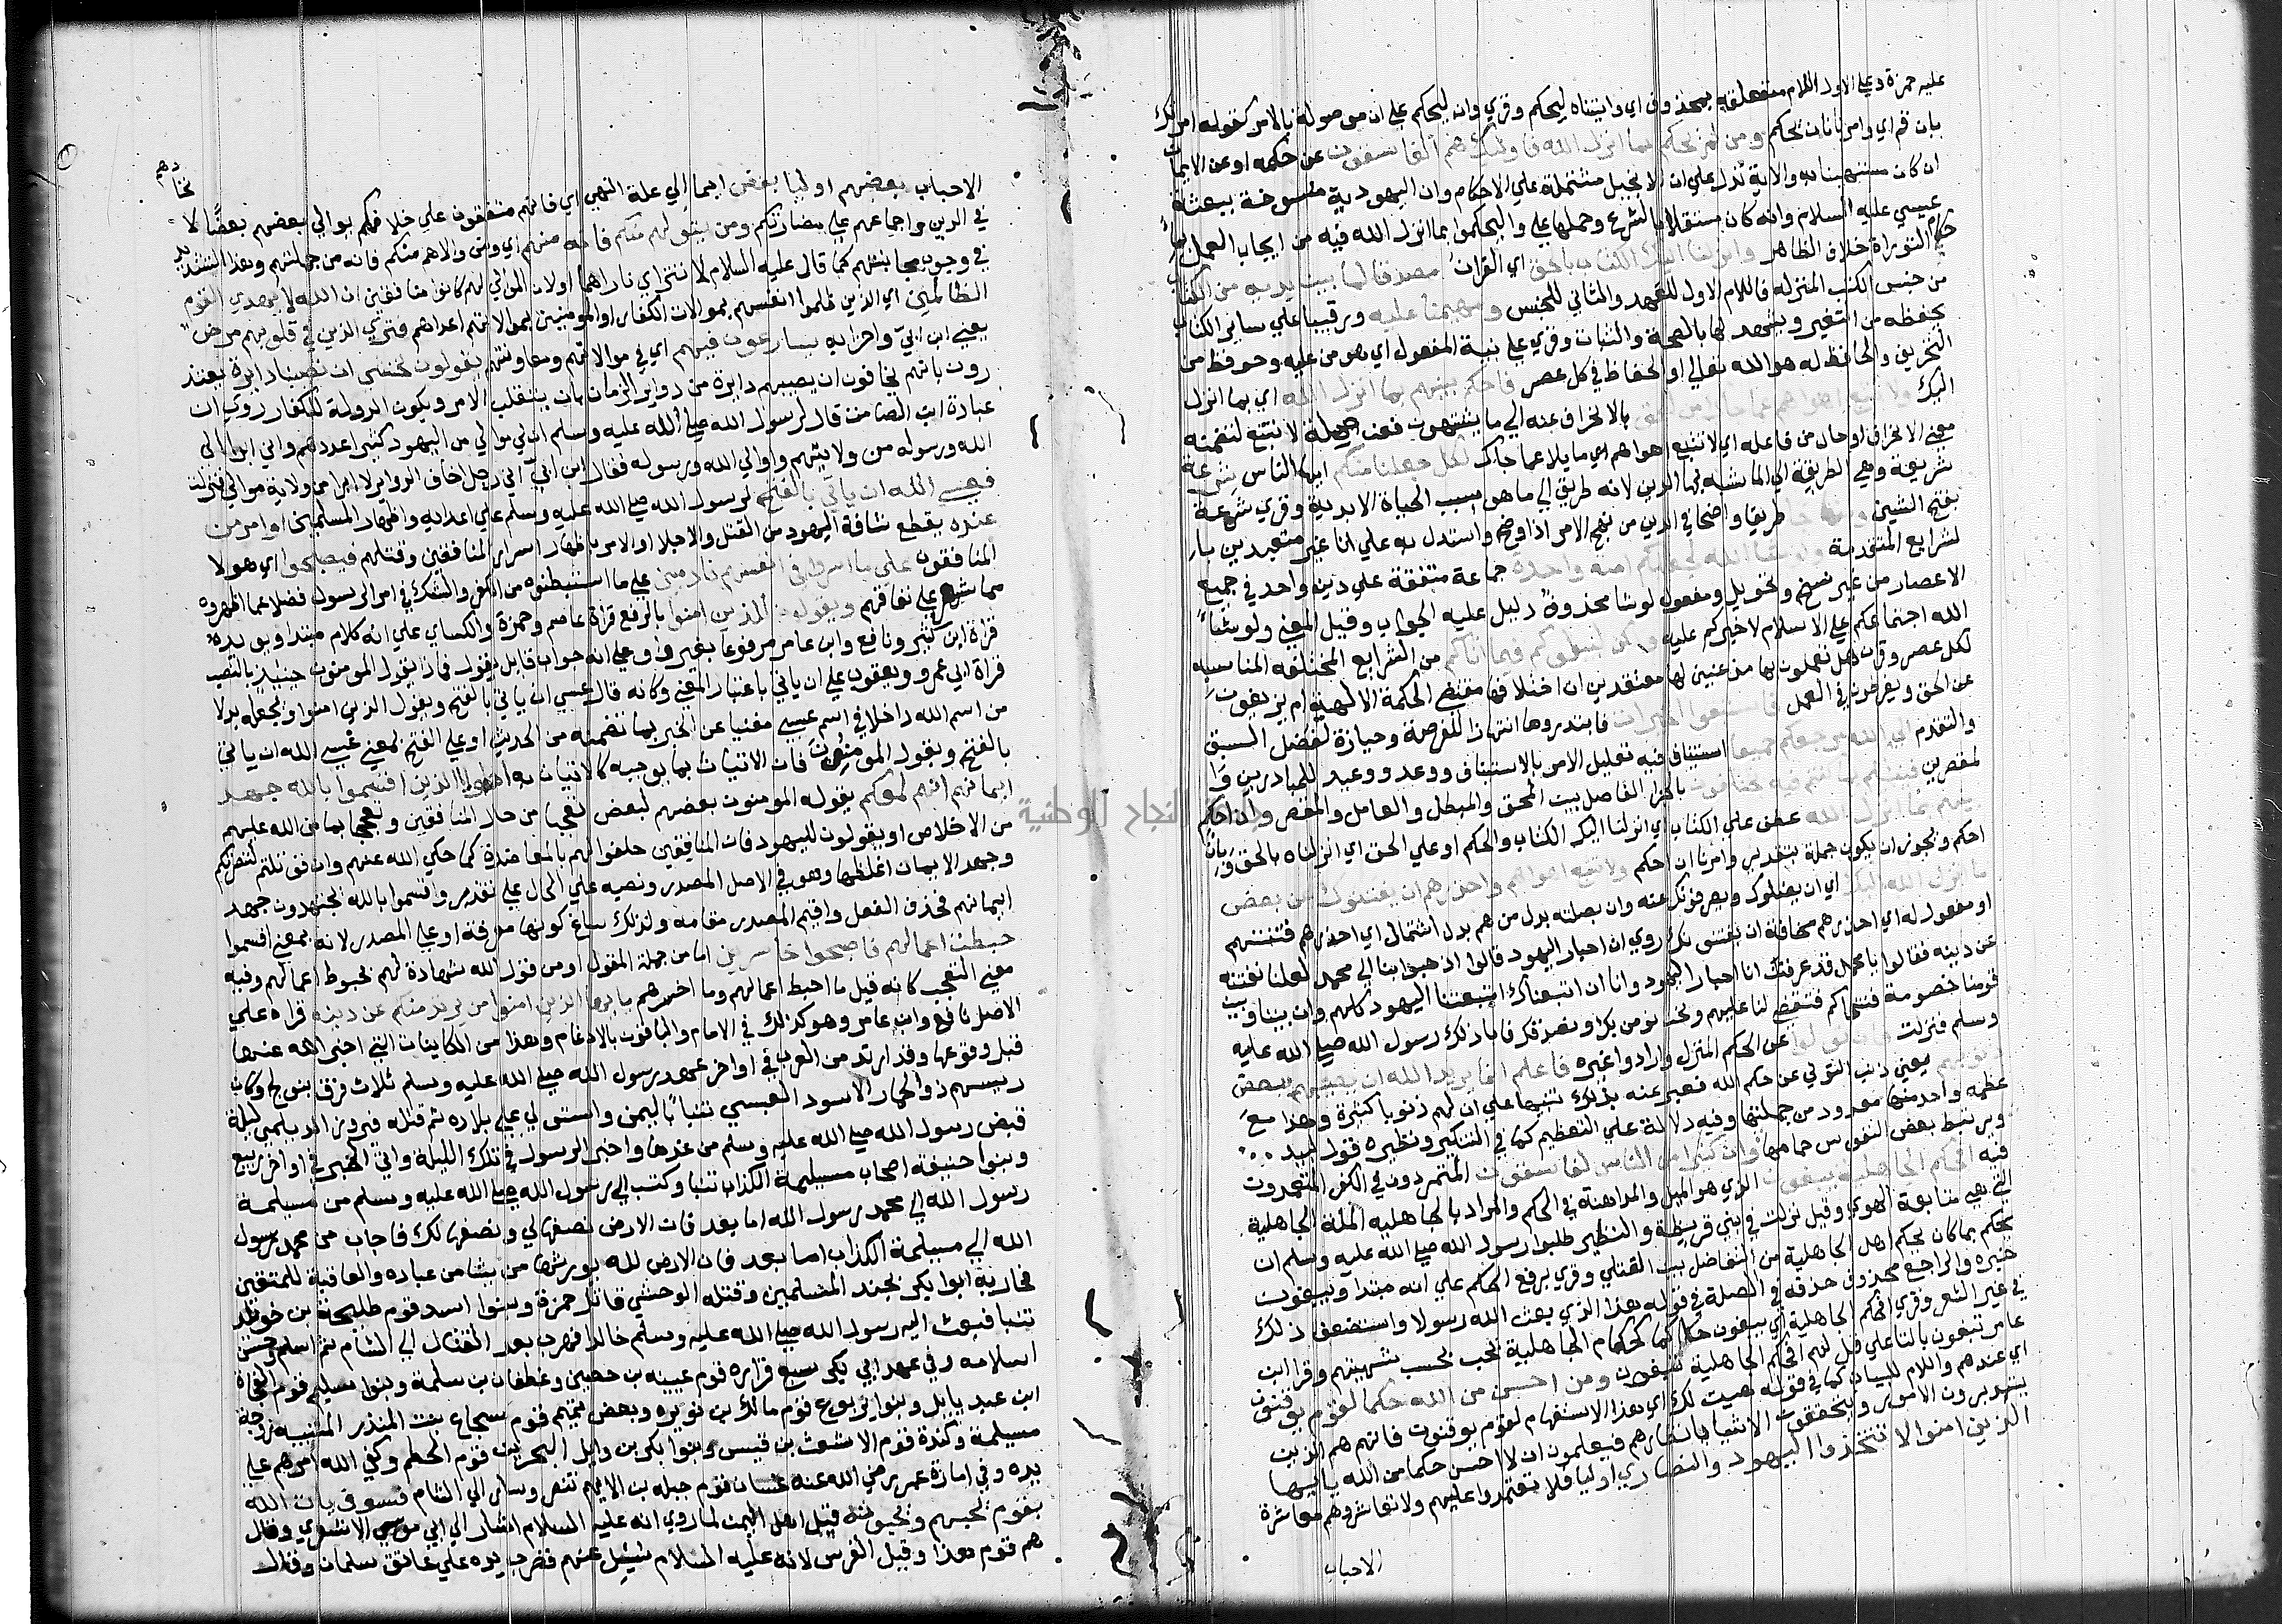 عليه حمزة وعلى الاول اللام متعلقة بمحذوف اي واتيناه ليحكم وقري وان ليحكم علي ان موصولة بالامر كقولك امرتك
بان قم اي وامرنا بان يحكم ومن لم يحكم بما انزل الله فاوليك هم الفاسقون عن حكمه او عن الايمان
ان كان مستهينا به والاية تدل علي ان الانجيل مشتملة علي الاحكام وان اليهودية منسوخة ببعثة
عيسي عليه السلام وانه كان مستقلا بالشرع وحملها علي وليحكموا بما انزل الله فيه من ايجاب العمل
التوراة خلاف الظاهر وانزلنا اليك الكتاب بالحق اي القران مصدقا لما بين يديه من الكتاب
من جنس الكتب المنزله فاللام الاول للعهد والثاني للجنس ومهيمنا عليه ورقيبا علي ساير الكتب
يحفظه من التغير ويشهد لها بالصحة والثبات وقري علي بنية المفعول اي هومن عليه وحوفظ من
التحريف والحافظ له هو الله تعالي او الحفاظ في كل عصر فاحكم بينهم بما انزل الله اي بما انزل
اليك ولا تتبع اهواهم عما جاك من الحق بالانحراف عنه الي ما يشتهون فعن صلة لا تتبع لتضمنه
معني الانحراف او حال من فاعله اي لا تتبع اهواهم مايلا عما جاك لكل جعلنا منكم ايها الناس شرعة
شريعة وهي الطريقة الي الما شبه بها الدين لانه طريق الي ما هو سبب الحياة الابدية وقري شرعة
بفتح الشين طريقا واضحا في الدين من نهج الامر اذا وضح واستدل به علي انا غير متعبدين بال
لشرايع المتقدمة ولو شا الله لجعلكم امة واحدة جماعة متفقة علي دين واحد في جميع
الاعصار من غير نسخ وتحويل ومفعول لو شا محذوف دليل عليه الجواب وقيل المعني ولو شا
الله اجتماعكم علي الاسلام لاجبركم عليه ولكن ليبلوكم فيما اتاكم من الشرايع المختلفه المناسبه
لكل عصر وقرن هل تعملون بها مذعنين لها معتقدين ان اختلافها مقتضي الحكمة الالهية ام تزيغون
عن الحق وتفرطون في العمل فاستبقوا الخيرات فابتدروها انتهازا للفرصة وحيازة لفضل السبق
والتقدم الي الله مرجعكم جميعا استيناف فيه تعليل الامر بالاستباق ووعد ووعيد للمبادرين وا
لمقصرين فينبئكم بما كنتم فيه تختلفون بالجزا الفاصل بين المحق والمبطل والعامل والمقصر وان احكم
بينهم بما انزل الله عطف علي الكتاب اي انزلنا اليك الكتاب والحكم او علي الحق اي انزلناه بالحق وبان
احكم ويجوز ان يكون جملة بتقدير وامرنا ان احكم ولا تتبع اهواهم واحذرهم ان يفتنوك عن بعض
ما انزل الله اليك اي ان يضلوك ويصرفونك عنه وان بصلته بدل من هم بدل اشتمال اي احذرهم فتنتهم
او مفعول له اي احذرهم مخافة ان يفتنوك روي ان احبار اليهود قالوا اذهبوا بنا الي محمد لعلنا نفتنه
عن دينه فقالوا يا محمد قد عرفت انا احبار اليهود وانا ان اتبعناك اتبعتنا اليهود كلهم وان بيننا وبين
قومنا خصومة فنتحاكم فتقضي لنا عليهم ونحن نومن بك ونصدقك فابا ذلك رسول الله صلي الله عليه
وسلم فنزلت فان تولوا عن الحكم المنزل وارادوا غيره فاعلم انما يريد الله ان يصيبهم ببعض
ذنوبهم يعني ذنب التولي عن حكم الله فعبر عنه بذلك تنبيها علي ان لهم ذنوبا كثيرة وهذا مع
عظمه واحد منها معدود من جملتها وفيه دلالة علي التعظيم كما في التنكير ونظيره قول لبيد
ويرتبط بعض النفوس حمامها وان كثيرا من الناس لفاسقون المتمردون في الكفر المتعدون
فيه افحكم الجاهلية يبغون الذي هو الميل والمداهنة في الحكم والمراد بالجاهليه الملة الجاهلية
التي هي متابعة الهوي وقيل نزلت في بني قريظة والنظير طلبوا رسول الله صلي الله عليه وسلم ان
يحكم بما كان يحكم اهل الجاهلية من التفاضل بين القتلي وقري برفع الحكم علي انه مبتدا ويبغون
خبره والراجع محذوف حذفه في الصلة في قوله هذا الذي بعث الله رسولا واستضعف ذلك
في غير الشعر وقري افحكم الجاهلية اي يبغون حكما كحكام الجاهلية يحب بحسب شهيتهم وقرا ابن
عامر تبغون بالتا علي قل لهم افحكم الجاهلية تبغون ومن احسن من الله حكما لقوم يوقنون
اي عندهم واللام للبيان كما في قوله هيت لك اي هذا الاستفهام لقوم يوقنون فانهم هم الذين
يتدبرون الامور ويتحققون الاشيا بانظارهم فيعلمون ان لا احسن حكما من الله يا ايها
الذين امنوا لا تتخذوا اليهود والنصاري اوليا فلا تعتمدوا عليهم ولا تعاشروهم معاشرة
الاحباب
الاحباب بعضهم اوليا بعض ايما الي علة النهي اي فانهم متفقون علي خلافكم يوالي بعضهم بعضا لا تحادهم
في الدين واجماعهم علي مضارتكم ومن يتولهم منكم فانه منهم اي ومن والاهم منكم فانه من جملتهم وهذا التشديد
في وجوب مجانبتهم كما قال عليه السلام لا تترااي ناراهما او لان الموالي لهم كانوا منافقين ان الله لا يهدي القوم
الظالمين اي الذين ظلموا انفسهم بموالات الكفار او المومنين بموالاتهم اعداهم فتري الذين في قلوبهم مرض
يعني ابن ابي واضرابه يسارعون فيهم اي في موالاتهم ومعاونتهم يقولون نخشي ان تصيبنا دايرة يعتذ
رون بانهم يخافون ان يصيبهم دايرة من دواير الزمان بان ينقلب الامر ويكون الدولة للكفار روي ان
عبادة ابن الصامت قال لرسول الله صلي الله عليه وسلم ان لي موالي من اليهود كثير اعددهم واني ابرا الي
الله ورسوله من ولايتهم واوالي الله ورسوله فقال ابن ابي اني رجل اخاف الدواير لا ابرا من ولاية موالي فنزلت
فعسي الله ان ياتي بالفتح لرسول الله صلي الله عليه وسلم علي اعدايه واظهار المسلمين او امر من
عنده يقطع شافة اليهود من القتل والاجلا او الامر باظهار اسرار المنافقين وقتلهم فيصبحوا اي هولا
المنافقون علي ما اسروا في انفسهم نادمين علي ما استبطنوه من الكفر والشك في امر الرسول فضلا عما اظهروه
مما اشعر علي نفاقهم ويقول الذين امنوا بالرفع قراة عاصم وحمزة والكساي علي انه كلام مبتدا ويويده
قراة ابن كثير ونافع وابن عامر مرفوعا بغير واو علي انه جواب قايل يقول فماذا يقول المومنون حينيذ بالنصب
قراة ابي عمرو ويعقوب علي ان ياتي باعتبار المعني وكانه قال عسي ان ياتي بالفتح ويقول الذين امنوا او بجعله بدلا
من اسم الله داخلا في اسم عسي مغنيا عن الخبر بما تضمنه من الحديث او علي الفتح بمعني عسي الله ان ياتي
بالفتح وبقول المومنون فان الاتيان بما يوجبه كالاتيان به اهولا الذين اقسموا بالله جهد
ايمانهم انهم لمعكم يقوله المومنون بعضهم لبعض تعجبا من حال المنافقين وتبجحا بما من الله عليهم
من الاخلاص او يقولون لليهود فان المنافقين حلفوا لهم بالمعاضدة كما حكي الله عنهم وان قوتلتم لننصرنكم
وجهد الايمان اغلظها وهو في الاصل المصدر ونصبه علي الحال علي تقدير واقسموا بالله يجتهدون جهد
ايمانهم فحذف الفعل واقيم المصدر مقامه ولذلك ساغ كونها معرفة او علي المصدر لانه بمعني اقسموا
حبطت اعمالهم فاصبحوا خاسرين اما من جملة المقول او من قول الله شهادة لهم بحبوط اعمالهم وفيه
معني التعجب كانه قيل ما احبط اعمالهم وما اخسرهم يا ايها الذين امنوا من يرتدد منكم عن دينه قراه علي
الاصل نافع وابن عامر وهو كذلك في الامام والباقون بالادغام وهذا من الكاينات التي اخبر الله عنها
قبل وقوعها وقد ارتد من العرب في اواخر عهد رسول الله صلي الله عليه وسلم ثلاث فرق بنو مدلج وكان
ريسهم ذو الحمار الاسود العبسي تنبا باليمن واستولي علي بلاده ثم قتله فيروز الديلمي ليلة
قبض رسول الله صلي الله عليه وسلم من غدها واخبر الرسول في تلك الليلة واتي الخبر في اواخر ربيع
وبنوا حنيفة اصحاب مسيلمة الكذاب تنبا وكتب الي رسول الله صلي الله عليه وسلم من مسيلمة
رسول الله الي محمد رسول الله اما بعد فان الارض نصفها لي ونصفها لك فاجاب من محمد رسول
الله الي مسيلمة الكذاب اما بعد فان الارض لله يورثها من يشا من عباده والعاقبة للمتقين
فحاربه ابوا بكر بجند المسلمين وقتله الوحشي قاتل حمزة وبنوا اسد قوم طليحة بن خويلد
تنبا فبعث اليه رسول الله صلي الله عليه وسلم خالدا فهرب بعد القتال الي الشام ثم اسلم وحسن
اسلامه وفي عهد ابي بكر سبع فزاره قوم عيينه بن حصين وغطفان بن سلمة وبنوا سليم قوم الفجاة
ابن عبد ياليل وبنوا يربوع قوم مالك بن نويره وبعض تميم قوم سجاح بنت المنذر المتنبيه زوجة
مسيلمة وكندة قوم الاشعث بن قيس وبنوا بكر بن وايل البحرين قوم الحطم وكفي الله امرهم علي
يده وفي امارة عمر رضي الله عنه غسان قوم جبله بن الايهم تنصر وسار الي الشام فسوف ياتي الله
بقوم يحبهم ويحبونه قيل اهل اليمن لما روي انه عليه السلام اشار الي ابي موسي الاشعري وقال
هم قوم هذا وقيل الفرس لانه عليه السلام سيل عنهم فضرب يده علي عاتق سلمان وقال